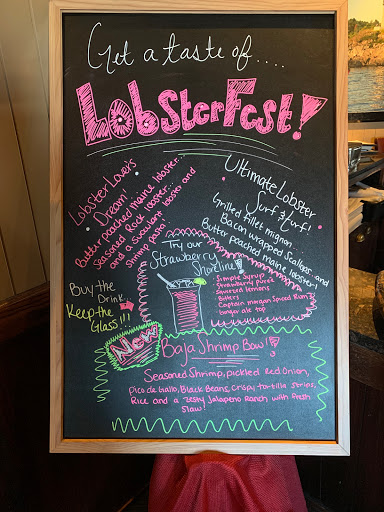 Get a taste of....
LobsterFest!
Lobster Lover's
Dream
Butter poached maine lobster.
Seasoned Rock lobster
and a succulent lobster and
shrimp pasta
Ultimate Lobster
Surf & turf!
Grilled filet mignon
Bacon wrapped Scallops and
Butter poached maine lobster!
Try our
Strawberry
Shoreline!
- Simple Syrup
Strawberry puree
lemons
Bitters
Captain morgan Spiced Rum
top
Buy the
Drink
Keep the
Glass!!!
New
Baja Shrimp Bowl!
Seasoned Shrimp, pickled Red Onion,
Pico de Gallo, Black Beans, Crispy tortilla strips,
Rice and a Zesty Jalapeno Ranch with fresh
Slaw!